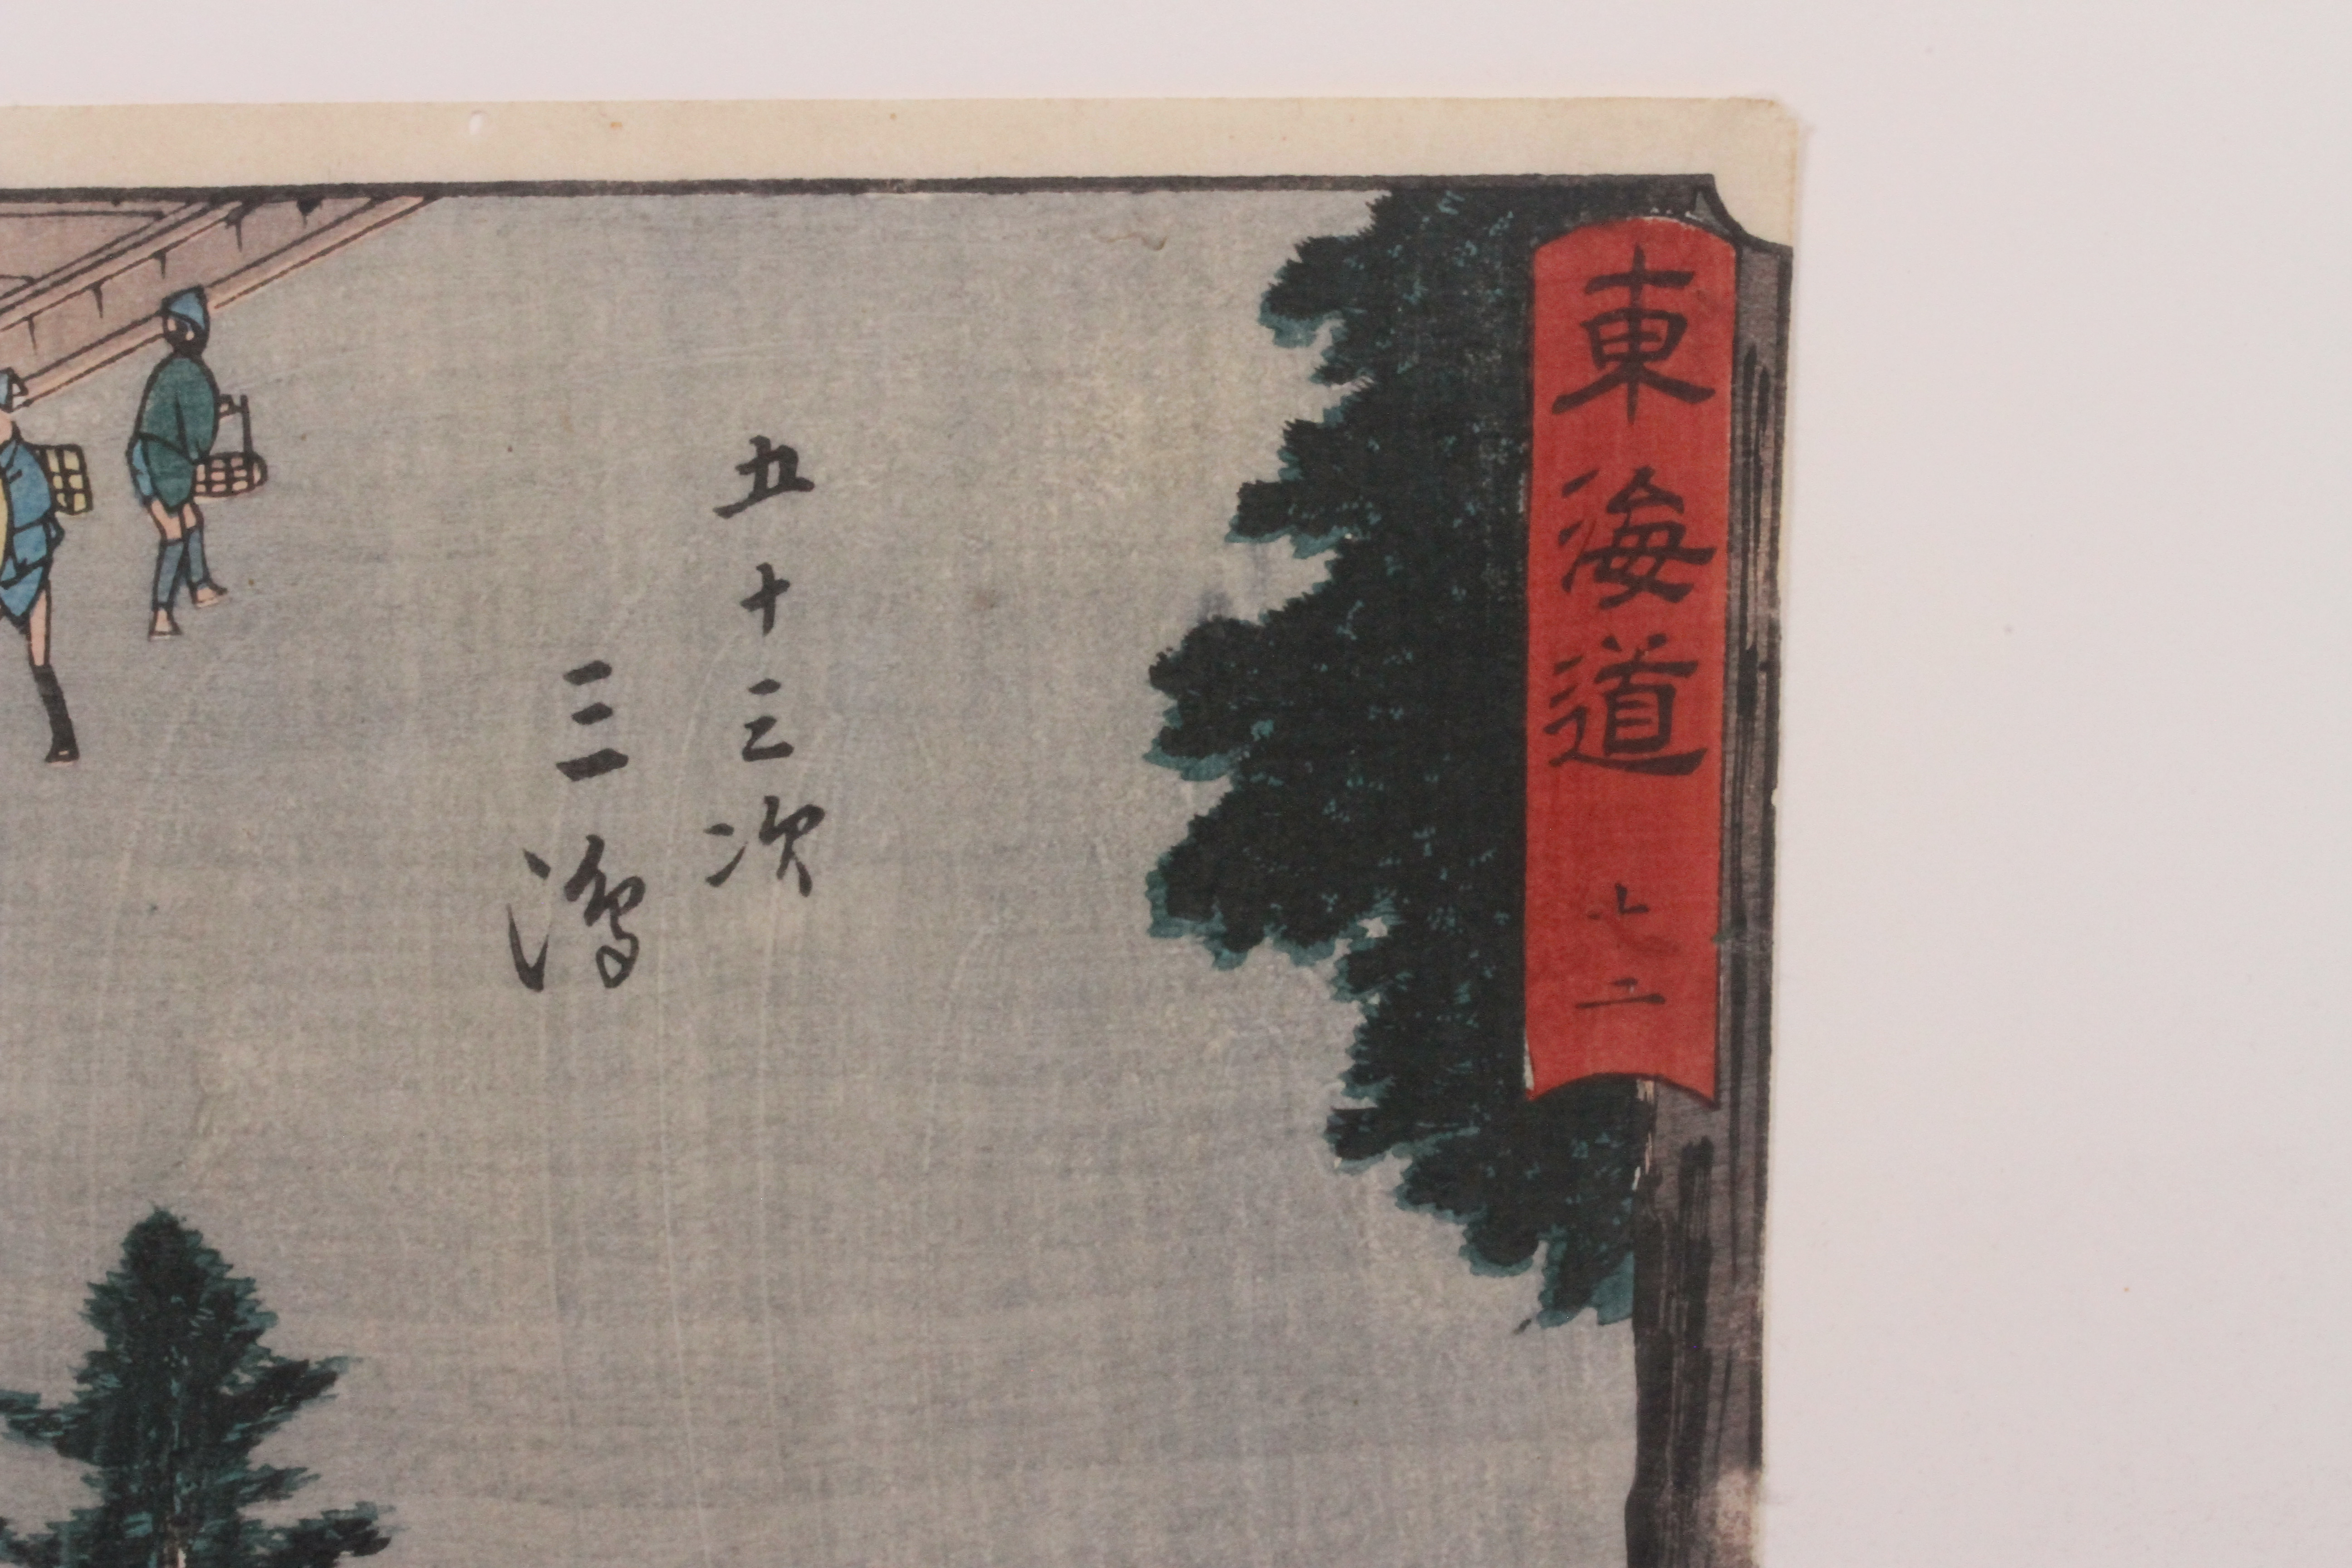 東海道 二
五十三次
三嶋